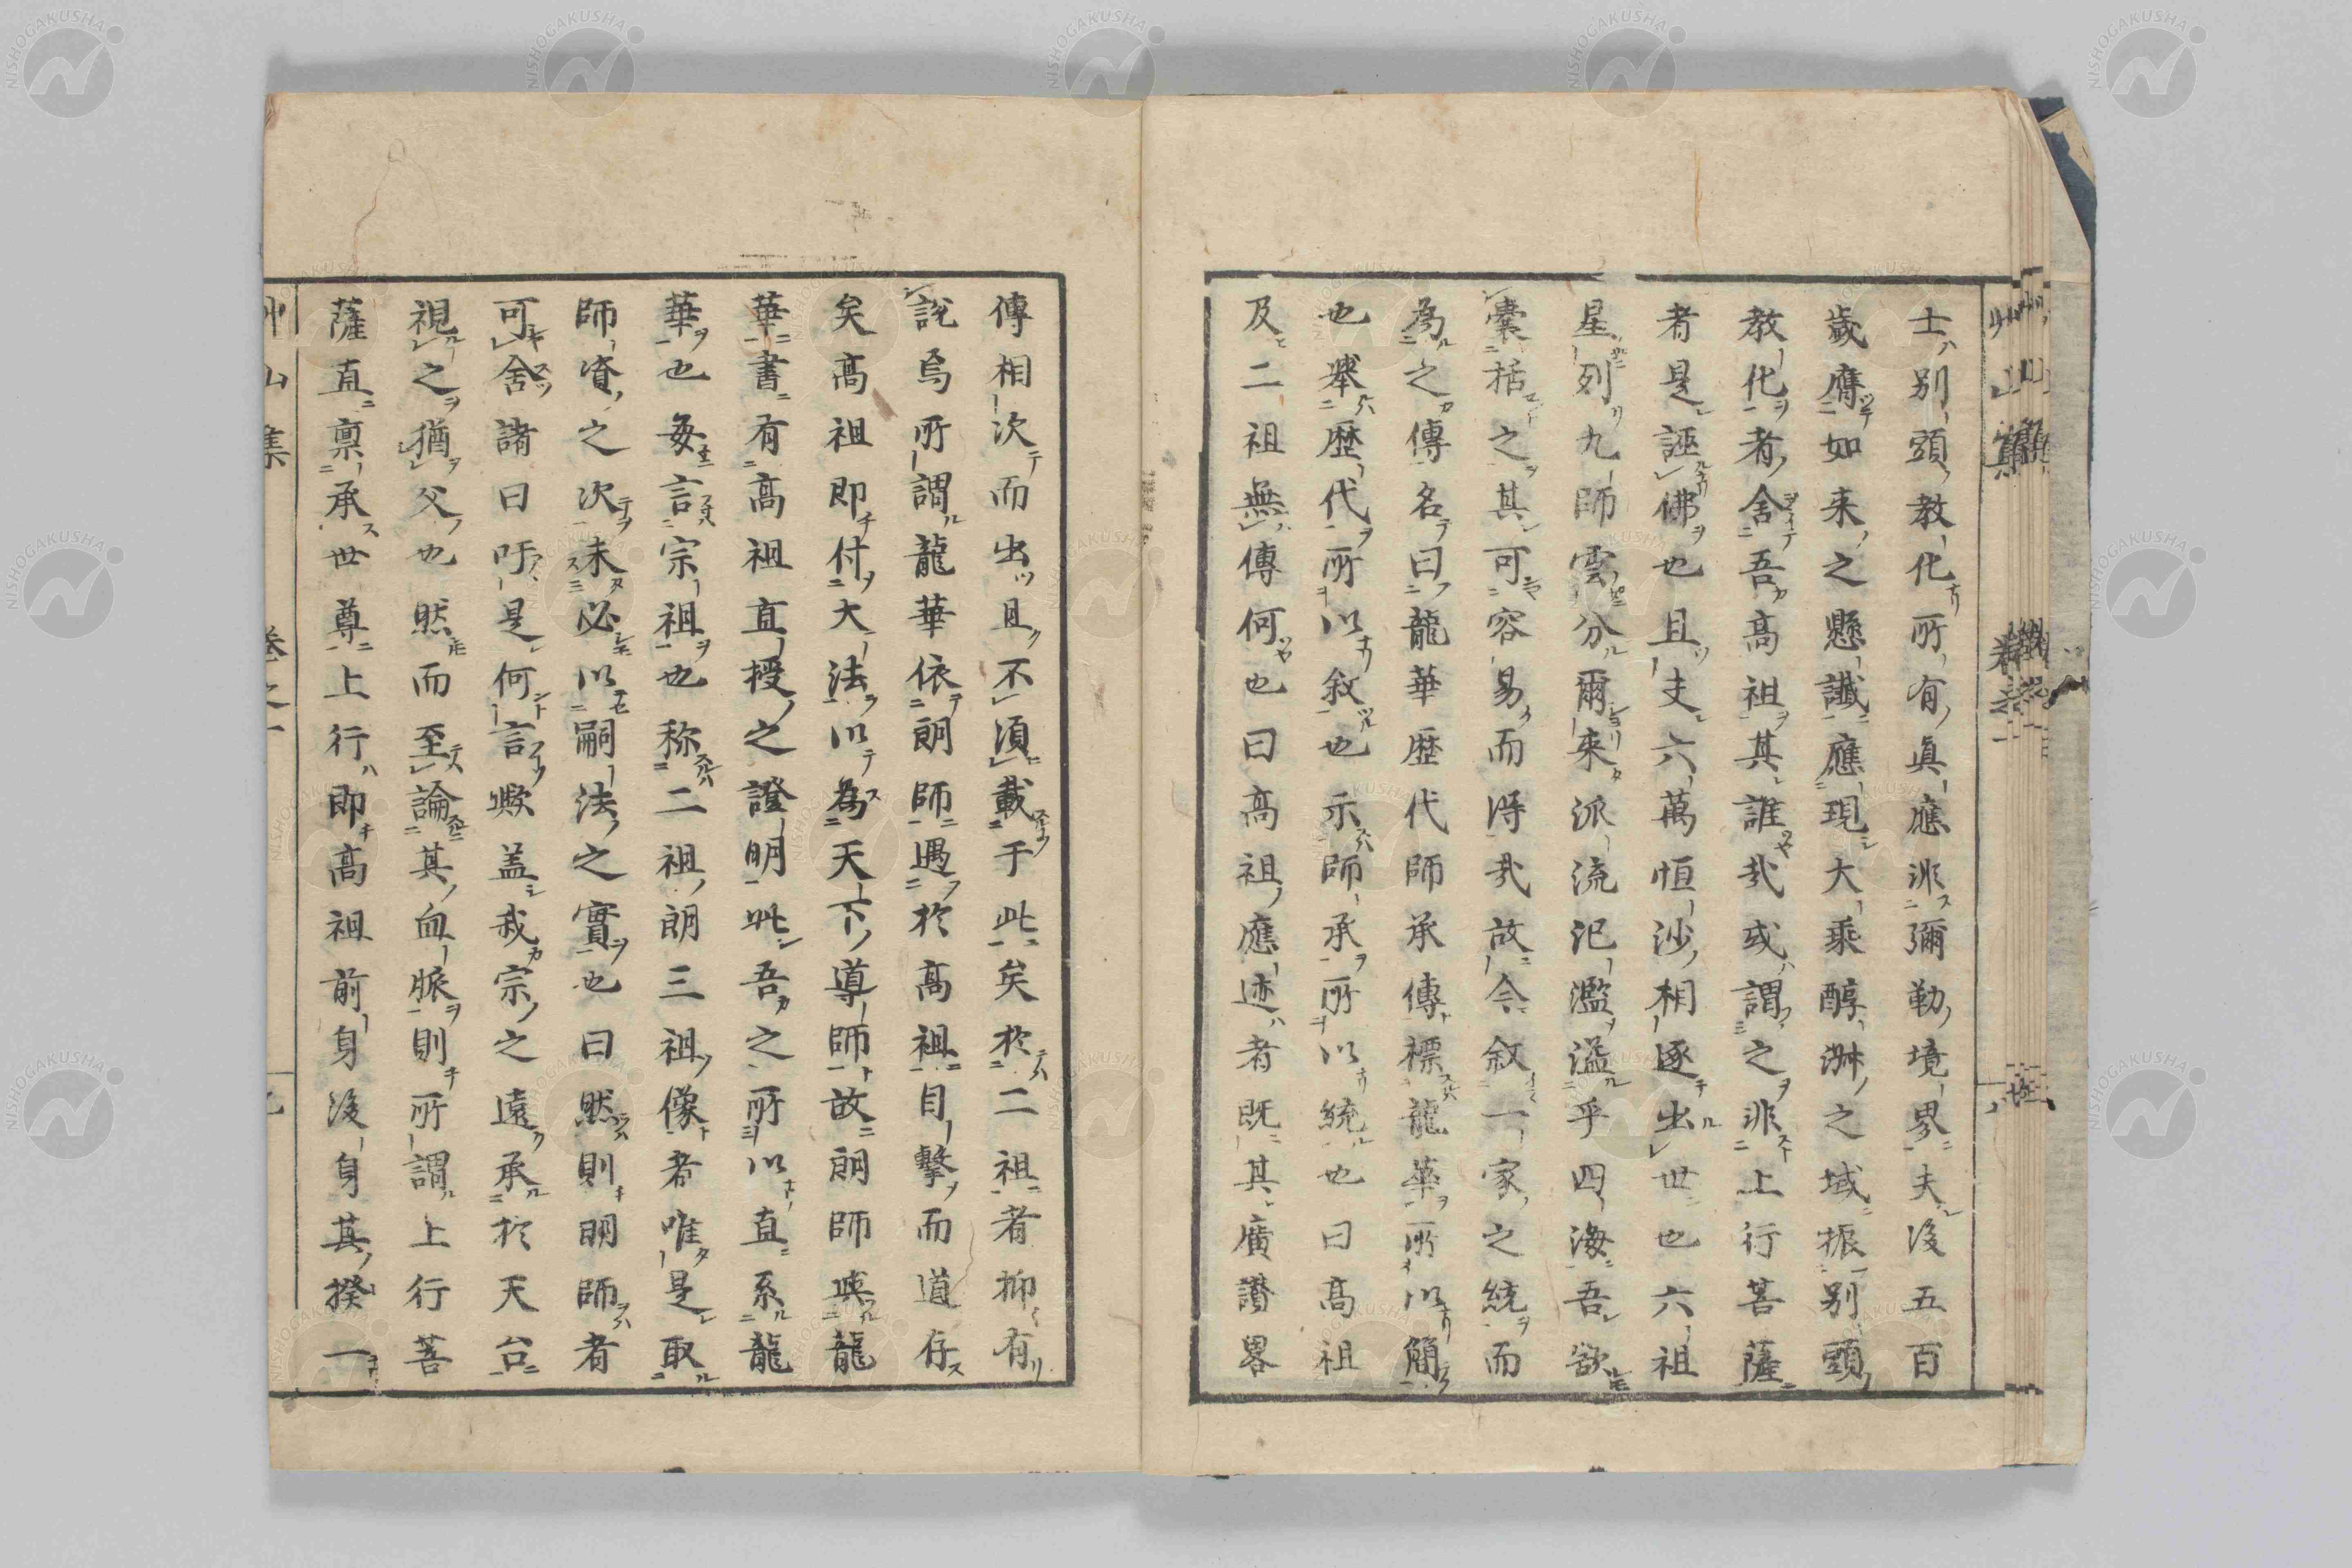 士別頭教化所有眞應非彌勒境界夫後五百
歲膺如来之懸讖應現大乘醇淋之域振別頭
教化者舍吾高祖其誰哉或謂之非上行菩薩
者是誣佛也且夫六萬恒沙相逐出世也六祖
星列九師雲分爾來派流汜濫溢乎四海吾欲
囊括之其可容易而得哉故今叙一家之統而
為之傳名曰龍華歴代師承傳標龍華所以簡
也舉歴代所以叙也示師承所以統也曰高祖
及二祖無傳何也曰高祖應迹者既其廣讃畧
傳相次而出且不須載于此矣於二祖者抑有
說焉所謂龍華依朗師遇於高祖目擊而道存
矣高祖即付大法以為天下導師故朗師嗾龍
華書有高祖直授之證明此吾之所以直系龍
華也毎言宗祖也称二祖朗三祖像者唯是取
師資之次未必以嗣法之實也曰然則朗師者
可舍諸曰吁是何言歟盖我宗之遠承於天台
視之猶父也然而至論其血脈則所謂上行菩
薩直禀承世尊上行即高祖前身後身其揆一
艸山集 巻之一